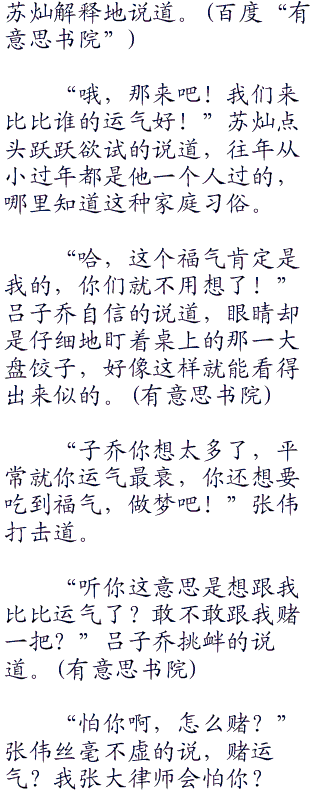 苏灿解释地说道。(百度“有
意思书院”)
“哦，那来吧！我们来
比比谁的运气好！”苏灿点
头跃跃欲试的说道，往年从
小过年都是他一个人过的，
哪里知道这种家庭习俗。
“哈，这个福气肯定是
我的，你们就不用想了！”
吕子乔自信的说道，眼睛却
是仔细地盯着桌上的那一大
盘饺子，好像这样就能看得
出来似的。(有意思书院)
“子乔你想太多了，平
常就你运气最衰，你还想要
吃到福气，做梦吧！”张伟
打击道。
“听你这意思是想跟我
比比运气了？敢不敢跟我赌
一把？”吕子乔挑衅的说
道。(有意思书院)
“怕你啊，怎么赌？”
张伟丝毫不虚的说，赌运
气？我张大律师会怕你？